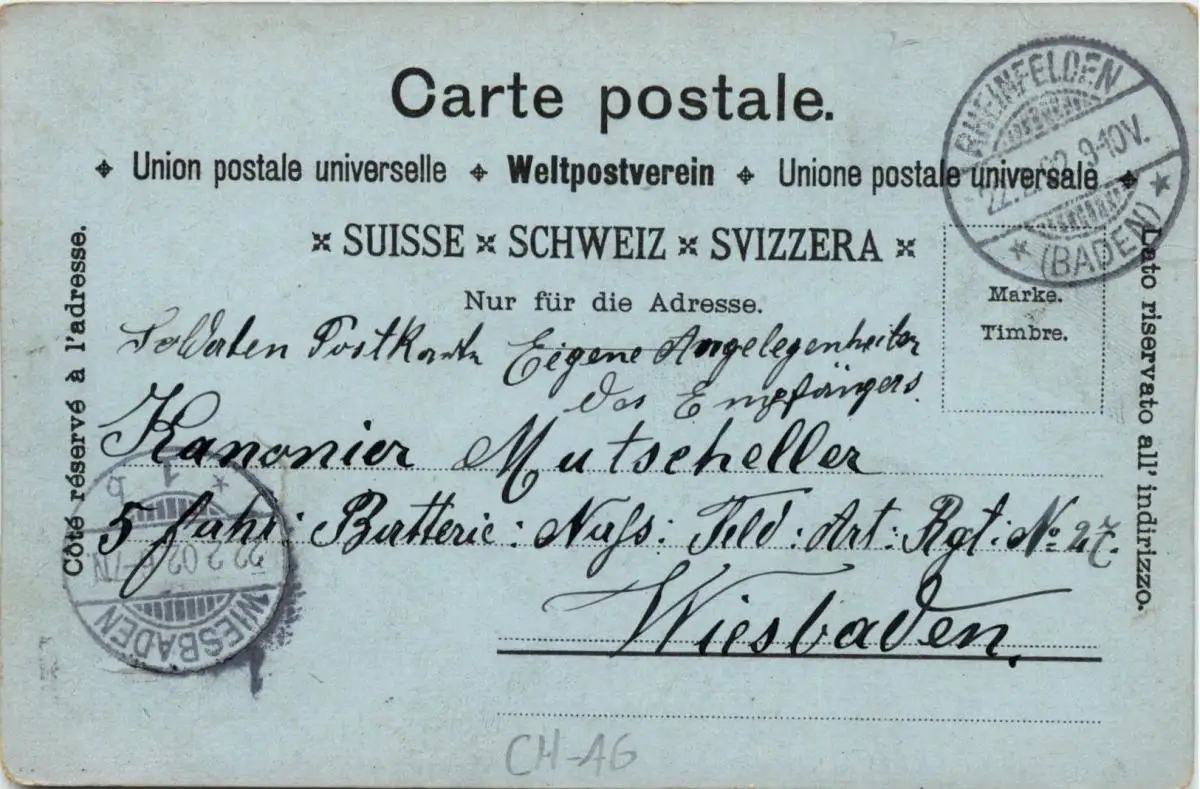 Carte postale.
Union postale universelle Weltpostverein Unione postale universale
SUISSE SCHWEIZ SVIZZERA
Nur für die Adresse.
Côté réservé à l'adresse.
Lato riservato all' indirizzo.
Marke.
Timbre.
RHEINFELDEN
22.2.02. 9-10V.
(BADEN)
Soldaten Postkarte Eigene Angelegenheiten
des Empfängers.
Kanonier Mutscheller
5 fahr: Batterie: Nass: Feld: Art: Rgt: No 27.
Wiesbaden.
WIESBADEN
22.2.02. 6-7N
1 b
CH-AG